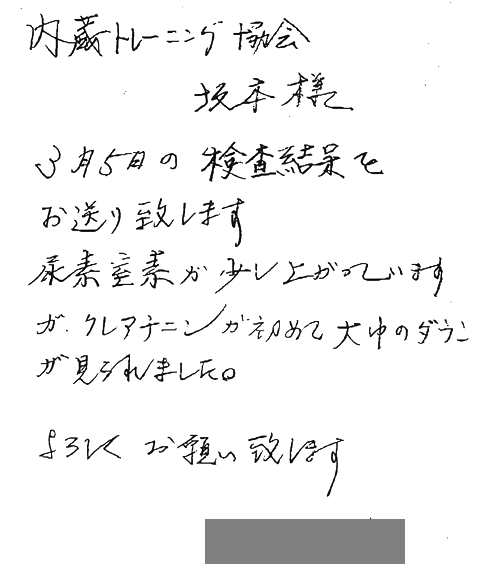 内蔵トレーニング協会
坂本様
3月5日の検査結果を
お送り致します
尿素窒素が少し上がっています
が、クレアチニンが初めて大巾のダウン
が見られました。
よろしくお願い致します